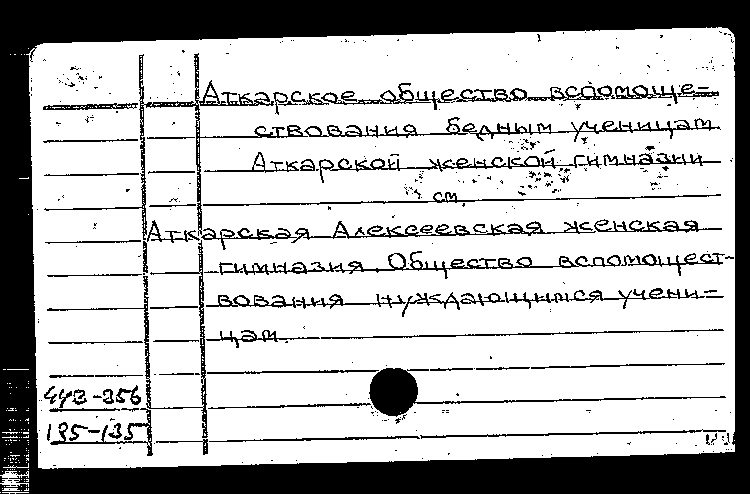 Аткарское общество вспомоще=
ствования бедным ученицам
Аткарской женской гимназии
см.
Аткарская Алексеевская женская
гимназия. Общество вспомощест-
вования нуждающимся учени=
цам.
443-356
195-135